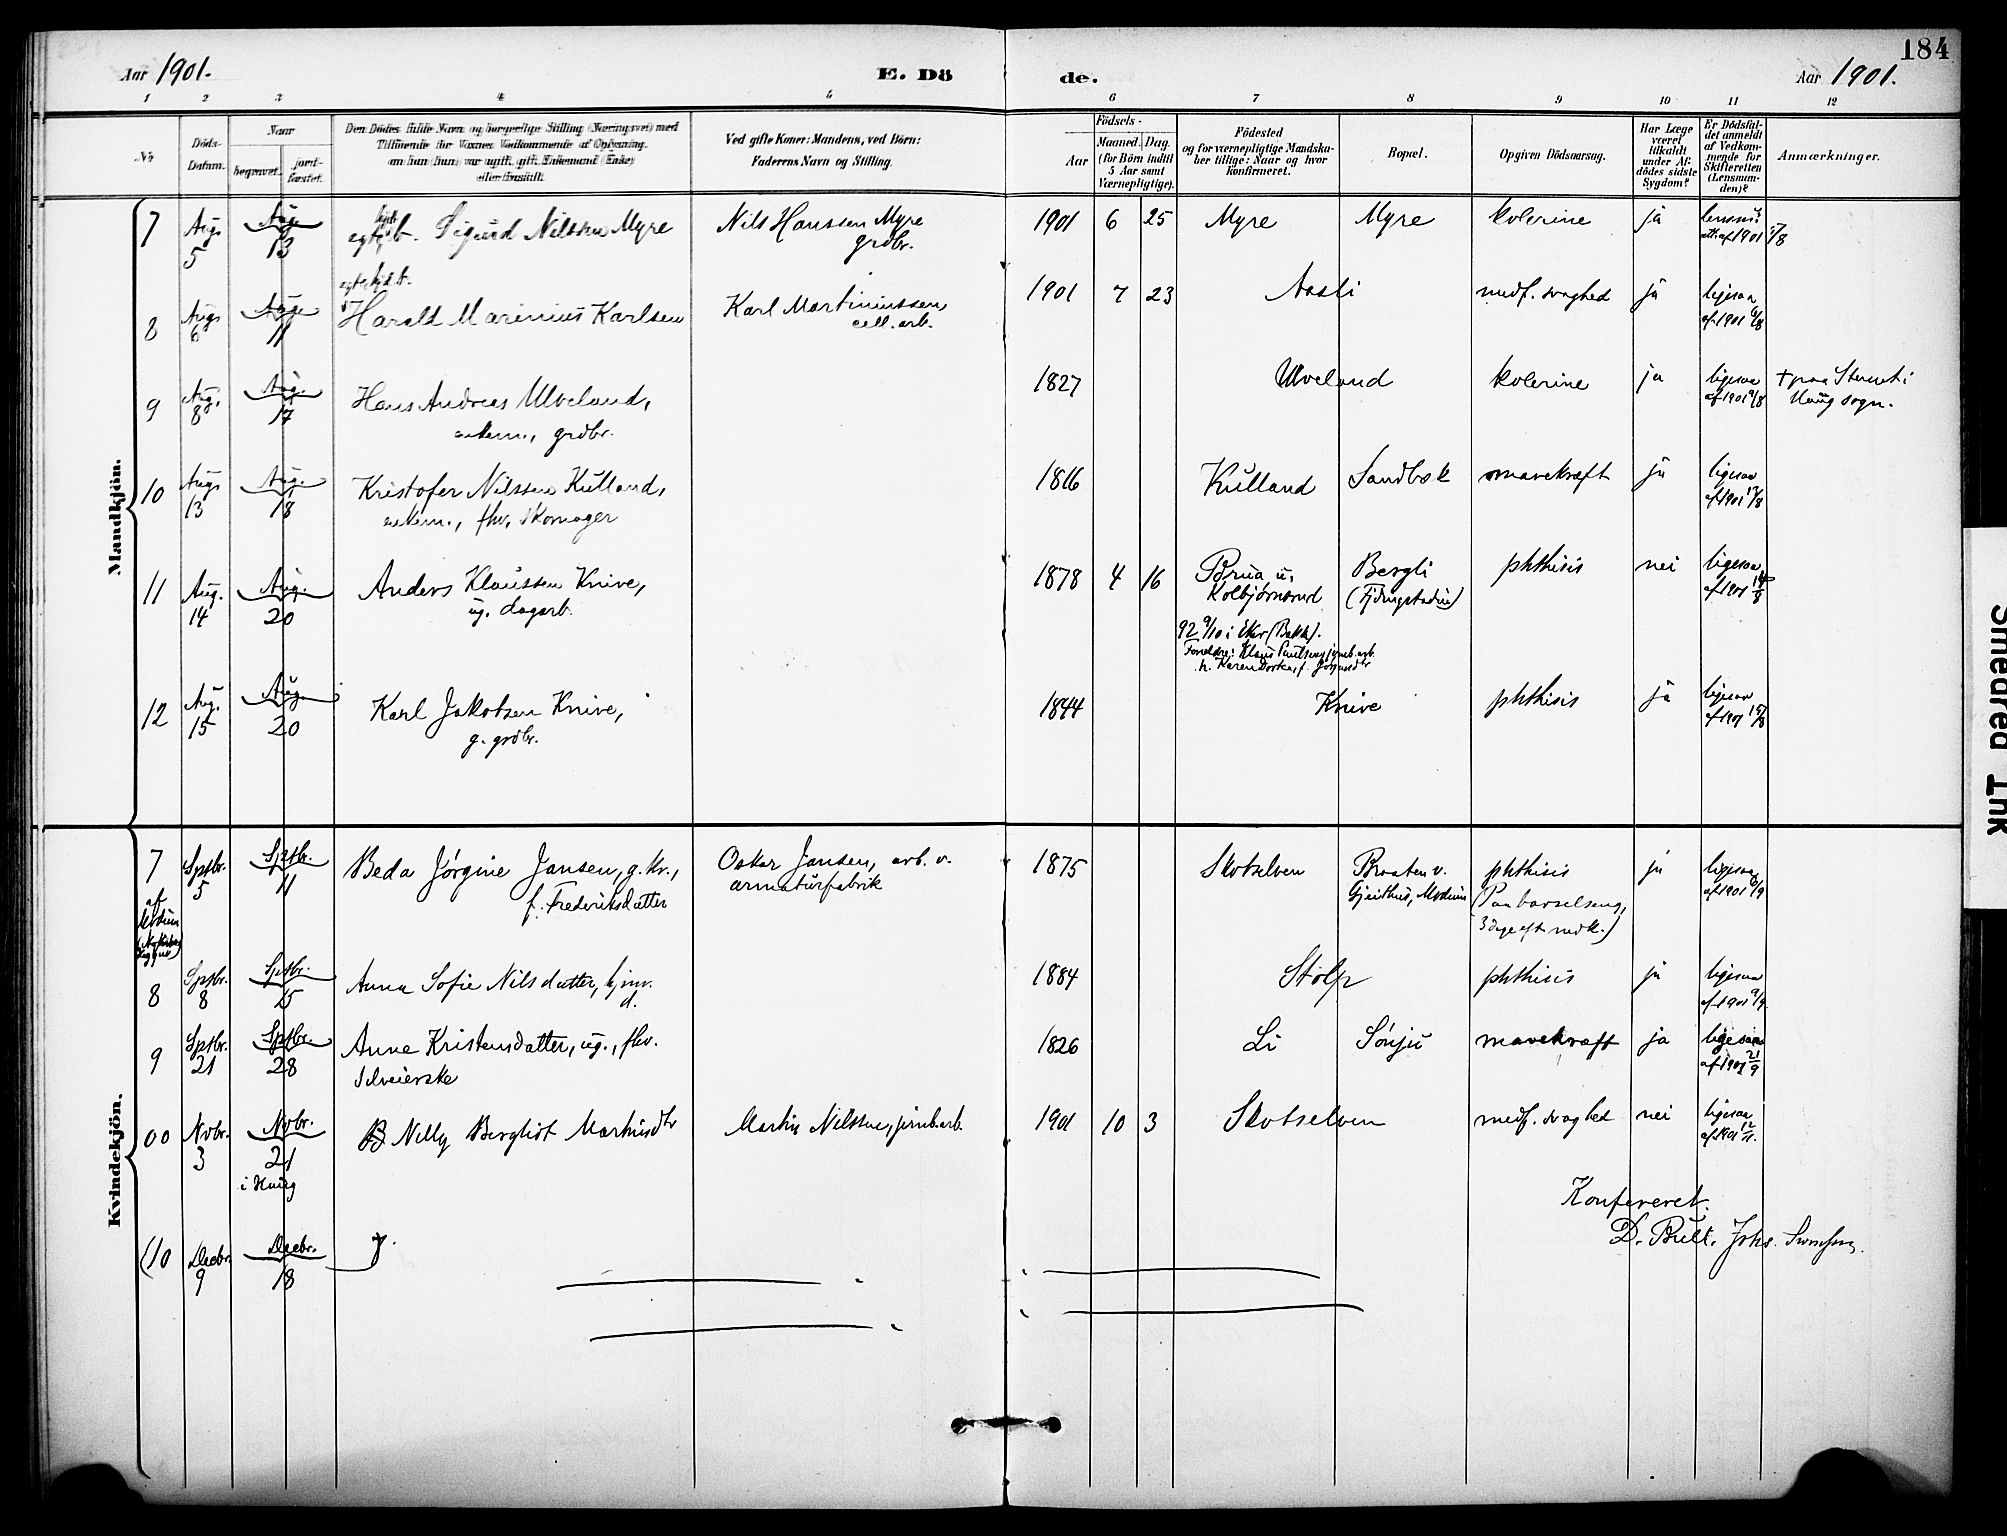 184
Aar 1901.
E. Dö
de.
Aar 1901.
1 2 3 4 5 6 7 8 9 10 11 12
No
Döds-
Datum.
Naar
begravet.
jord-
fæstet.
Den Dödes fulde Navn og borgerlige Stilling (Næringsvei) med
Tilföiende for Voxnes Vedkommende af Oplysning,
om han (hun) var ugift, gift, Enkemand (Enke)
eller fraskilt.
Ved gifte Koner: Mandens, ved Börn:
Faderens Navn og Stilling.
Födsels-
Aar
Maaned. Dag.
(for Börn indtil
5 Aar samt
Værnepligtige).
Födested
og for værnepligtige Mandska-
ber tillige: Naar og hvor
konfirmeret.
Bopæl.
Opgiven Dödsaarsag.
Har Læge
været
tilkaldt
under Af-
dödes sidste
Sygdom?
Er Dödsfal-
det anmeldt
af Vedkom-
mende for
Skifteretten
(Lensman-
den)?
Anmærkninger.
Mandkjön.
7 Aug. 5 Aug. 13 Sigurd Nilssen Myre Nils Hanssen Myre grdbr. 1901 6 25 Myre Myre kolerine ja af 1901 7/8
8 Aug. 6 Aug. 11 Harald Marinius Karlsen Karl Martiniussen, cell.arb. 1901 7 23 Aasli medf. svaghed ja ligesaa af 1901 6/8
9 Aug. 8 Aug. 17 Hans Andreas Ulveland, enkem., grdbr. 1827 Ulveland kolerine ja ligesaa af 1901 9/8 + paa Sterud i Haug sogn.
10 Aug. 13 Aug. 18 Kristofer Nilssen Kulland, enkem., fhv. Skomager 1816 Kulland Sandbæk mavekræft ja ligesaa af 1901 17/8
11 Aug. 14 Aug. 20 Anders Klaussen Knive, ug. dagarb. 1878 4 16 Brua u. Kolbjørnsrud Bergli phthisis nei ligesaa af 1901
92 9/10 i Eker (Bakke).
Forældre: Klaus Paulsen, jernb.arb.
12 Aug. 15 Aug. 20 Karl Jakobsen Knive, g. grdbr. 1844 Knive phthisis ja ligesaa af 1901 15/8
Kvindekjön.
7 af Modum Sptbr. 5 Sptbr. 11 Beda Jørgine Jansen, g. kv., f. Frederiksdatter Oskar Jansen, arb. v. armaturfabrik 1875 Skotselven Braaten v. Gjeithus, Modum phthisis (Paa barselseng, 3 dage eft. nedk.) ja ligesaa af 1901 6/9
8 Sptbr. 8 Sptbr. 15 Anna Sofie Nilsdatter, hjmv. d. 1884 Stolp phthisis ja ligesaa af 1901 9/9
9 Sptbr. 21 Sptbr. 28 Anne Kristensdatter, ug., fhv. Selveierske 1826 Li Sønju mavekræft ja ligesaa af 1901 21/9
00 Novbr. 3 Novbr. 21 i Haug Nelly Bergliot Martinsdtr Martin Nilssen, jernb.arb. 1901 10 3 Skotselven medf. svaghed nei ligesaa af 1901 12/11.
(10 Decbr. 9 Decbr. 18
Konfereret.
D. Bull. Johs.
Smedred Ink